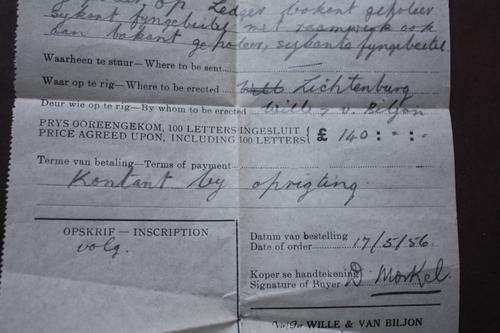 op Ledger bokant gepoleer
sykant fyngebeitel met raamwerk ook
aan bokant gepoleer, sykante fyngebeitel
Waarheen te stuur—Where to be sent
Waar op te rig—Where to be erected Lichtenburg
Deur wie op te rig—By whom to be erected Wille & v. Biljon
PRYS OOREENGEKOM, 100 LETTERS INGESLUIT
PRICE AGREED UPON, INCLUDING 100 LETTERS } £ 140 : - : -
Terme van betaling—Terms of payment
Kontant by oprigting.
OPSKRIF — INSCRIPTION
volg.
Datum van bestelling
Date of order 17/5/56.
Koper se handtekening
Signature of Buyer D Morkel
WILLE & VAN BILJON